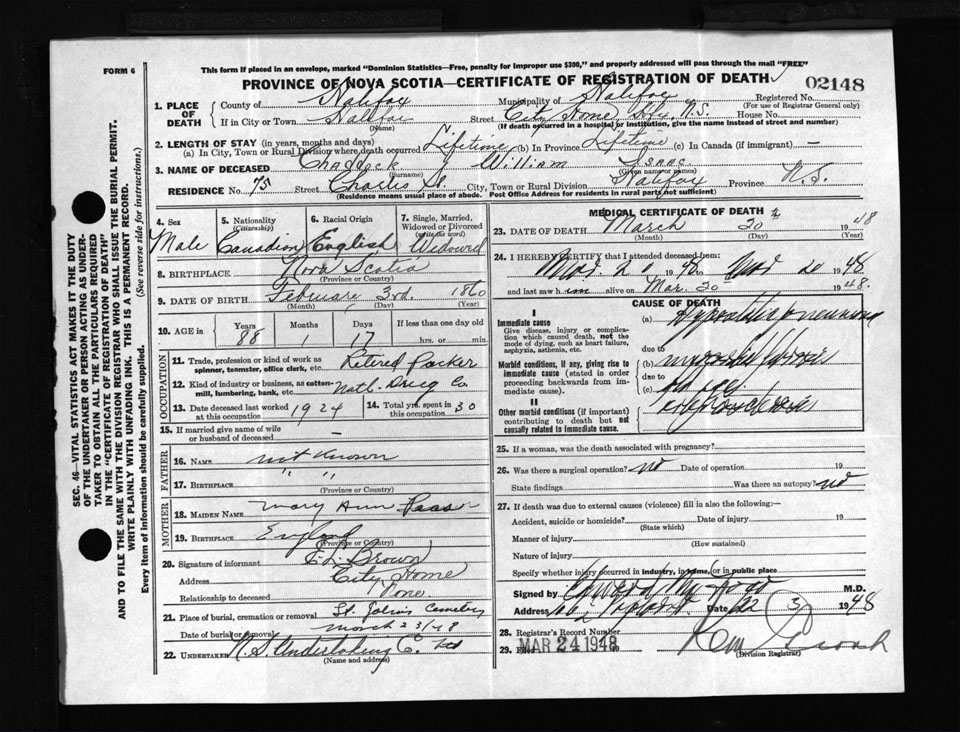 FORM 6
This form if placed in an envelope, marked "Dominion Statistics—Free, penalty for improper use $300," and properly addressed will pass through the mail "FREE"
PROVINCE OF NOVA SCOTIA—CERTIFICATE OF REGISTRATION OF DEATH
02148
1. PLACE OF DEATH
County of Halifax
Municipality of Halifax
Registered No.
(For use of Registrar General only)
If in City or Town Halifax
(Name)
Street City Home Hfx, N.S. House No.
(If death occurred in a hospital or institution, give the name instead of street and number)
2. LENGTH OF STAY (in years, months and days)
(a) In City, Town or Rural Division where death occurred Lifetime (b) In Province Lifetime (c) In Canada (if immigrant) —
3. NAME OF DECEASED Chaddock William Isaac
(Surname) (Given name or names)
RESIDENCE No. 75 Street Charles St. City, Town or Rural Division Halifax Province N.S.
(Residence means usual place of abode. Post Office Address for residents in rural parts not sufficient)
4. Sex
Male
5. Nationality
(Citizenship)
Canadian
6. Racial Origin
English
7. Single, Married, Widowed or Divorced
(write the word)
Widowed
8. BIRTHPLACE Nova Scotia
(Province or Country)
9. DATE OF BIRTH February 3rd. 1860
(Month) (Day) (Year)
10. AGE in
Years Months Days If less than one day old
88 1 17 hrs. or min.
OCCUPATION
11. Trade, profession or kind of work as spinner, teamster, office clerk, etc. Retired Packer
12. Kind of industry or business, as cotton-mill, lumbering, bank, etc. Natl. Drug Co
13. Date deceased last worked at this occupation 1924
14. Total yrs. spent in this occupation 30
15. If married give name of wife or husband of deceased —
FATHER
16. NAME not known
17. BIRTHPLACE " "
(Province or Country)
MOTHER
18. MAIDEN NAME Mary Ann
19. BIRTHPLACE England
(Province or Country)
20. Signature of informant E.L. Brown
Address City Home
Relationship to deceased None
21. Place of burial, cremation or removal St. John's Cemetery
Date of burial or removal March 23/48
22. UNDERTAKER N.S. Undertaking Co. Ltd
(Name and address)
MEDICAL CERTIFICATE OF DEATH
23. DATE OF DEATH March 20 1948
(Month) (Day)
24. I HEREBY CERTIFY that I attended deceased from:
Mar. 20 1948 to Mar 20 1948
and last saw him alive on Mar. 20 1948.
CAUSE OF DEATH
I
Immediate cause
Give disease, injury or complication which caused death, not the mode of dying, such as heart failure, asphyxia, asthenia, etc.
(a) Hypostatic pneumonia
due to
Morbid conditions, if any, giving rise to immediate cause (stated in order proceeding backwards from immediate cause).
(b)
due to
(c) old age
II
Other morbid conditions (if important) contributing to death but not causally related to immediate cause.
25. If a woman, was the death associated with pregnancy?
26. Was there a surgical operation? no Date of operation 19
State findings Was there an autopsy? no
27. If death was due to external causes (violence) fill in also the following:—
Accident, suicide or homicide? Date of injury 19
(State which)
Manner of injury
(How sustained)
Nature of injury
Specify whether injury occurred in industry, in home, or in public place
Signed by M.D.
Address Date 22 3 1948
28. Registrar's Record Number
29. Filed MAR 24 1948
(Division Registrar)
SEC. 46—VITAL STATISTICS ACT MAKES IT THE DUTY
OF THE UNDERTAKER OR PERSON ACTING AS UNDER-
TAKER TO OBTAIN ALL THE PARTICULARS REQUIRED
IN THE "CERTIFICATE OF REGISTRATION OF DEATH"
AND TO FILE THE SAME WITH THE DIVISION REGISTRAR WHO SHALL ISSUE THE BURIAL PERMIT.
WRITE PLAINLY WITH UNFADING INK. THIS IS A PERMANENT RECORD.
Every item of information should be carefully supplied. (See reverse side for instructions.)